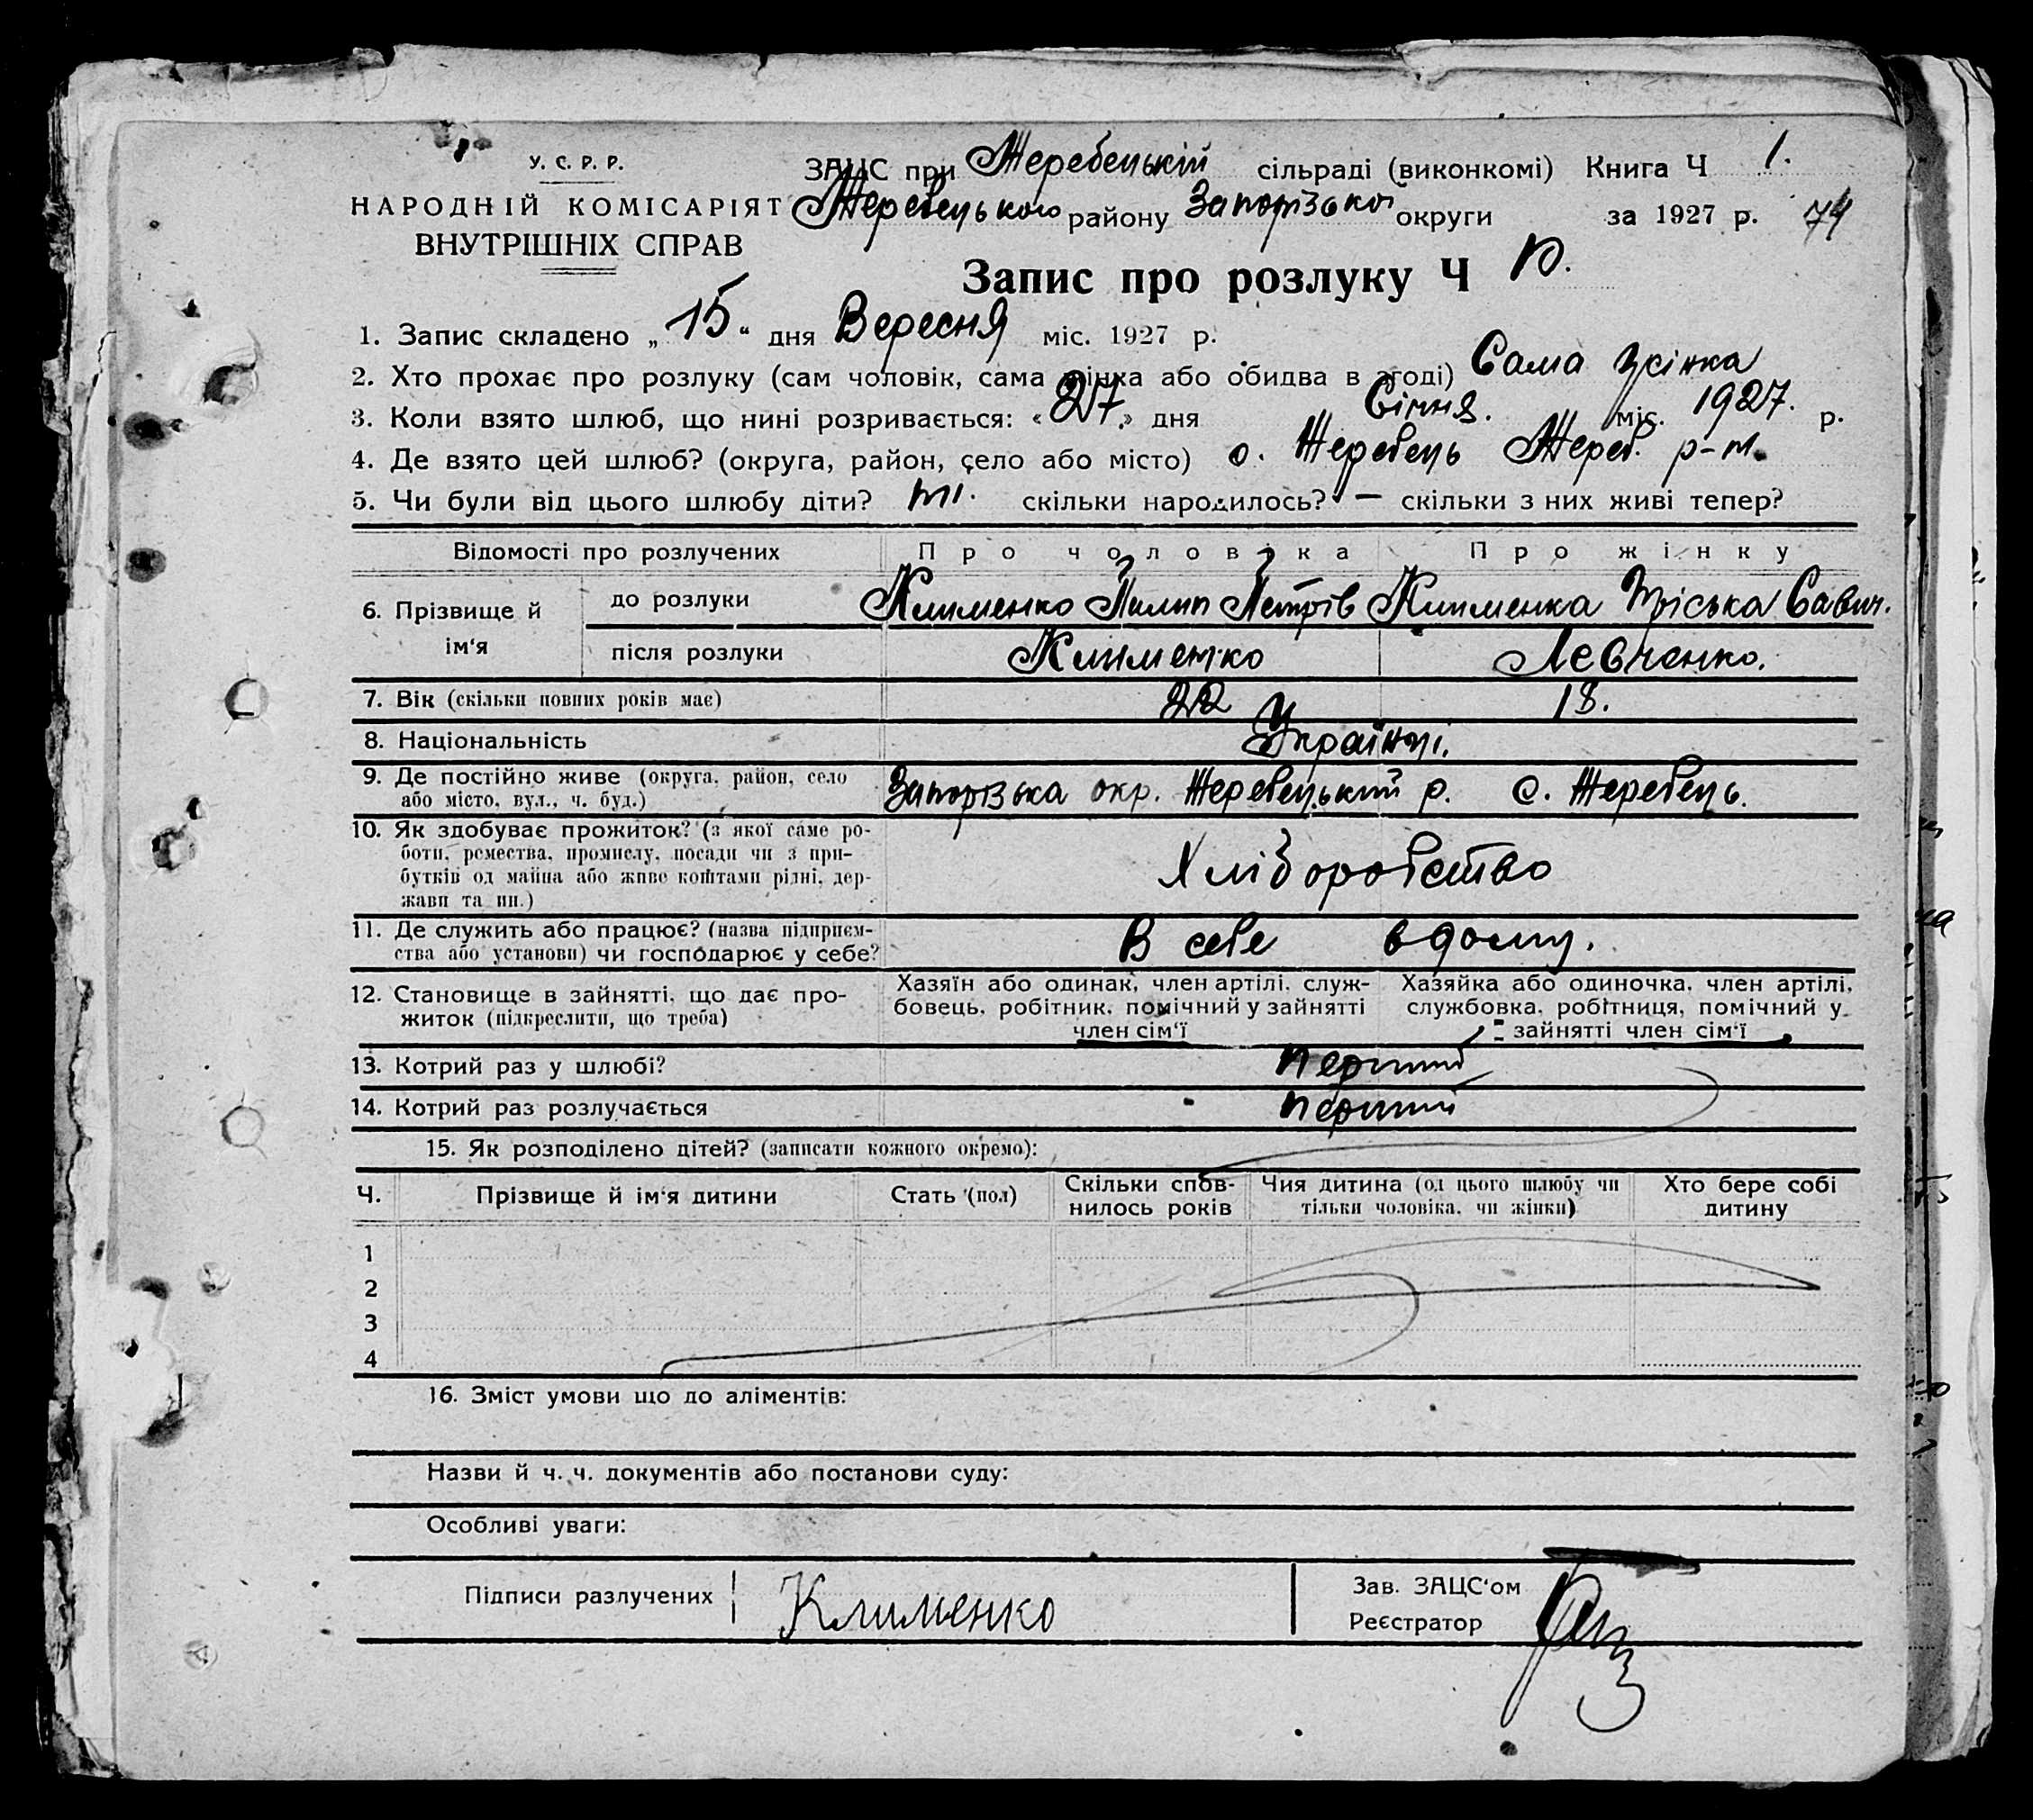 У. С. Р. Р.
НАРОДНІЙ КОМІСАРІЯТ
ВНУТРІШНІХ СПРАВ
ЗАЦС при Жеребецькій сільраді (виконкомі) Книга Ч 1.
Жеребецького району Запорізької округи за 1927 р. 74
Запис про розлуку Ч
1. Запис складено „ 15 “ дня Вересня міс. 1927 р.
2. Хто прохає про розлуку (сам чоловік, сама жінка або обидва в згоді) Сама жінка
3. Коли взято шлюб, що нині розривається: « 27 » дня Січня. міс. 1927. р.
4. Де взято цей шлюб? (округа, район, село або місто) с. Жеребець Жереб. р-н.
5. Чи були від цього шлюбу діти? ні. скільки народилось? — скільки з них живі тепер?
Відомості про розлучених Про чоловіка Про жінку
6. Прізвище й ім‘я
до розлуки Клименко Пилип Петрів Клименка Пріська Савич.
після розлуки Клименко Левченко.
7. Вік (скільки повних років має) 22 18.
8. Національність Українці.
9. Де постійно живе (округа, район, село Запорізька окр. Жеребецький р. с. Жеребець.
або місто, вул., ч. буд.)
10. Як здобуває прожиток? (з якої саме ро-
боти, ремества, промислу, посади чи з при-
бутків од майна або живе коштами рідні, дер-
жави та ин.) Хліборобство
11. Де служить або працює? (назва підприєм-
ства або установи) чи господарює у себе? В себе вдому.
12. Становище в зайнятті, що дає про-
житок (підкреслити, що треба)
Хазяїн або одинак, член артілі, служ-
бовець, робітник, помічний у зайнятті
член сім‘ї
Хазяйка або одиночка, член артілі,
службовка, робітниця, помічний у
зайнятті член сім‘ї
13. Котрий раз у шлюбі? перший
14. Котрий раз розлучається перший
15. Як розподілено дітей? (записати кожного окремо):
Ч. Прізвище й ім‘я дитини Стать (пол) Скільки спов-нилось років Чия дитина (од цього шлюбу чи тільки чоловіка, чи жінки) Хто бере собі дитину
1
2
3
4
16. Зміст умови що до аліментів:
Назви й ч. ч. документів або постанови суду:
Особливі уваги:
Підписи разлучених Клименко
Зав. ЗАЦС‘ом
Реєстратор